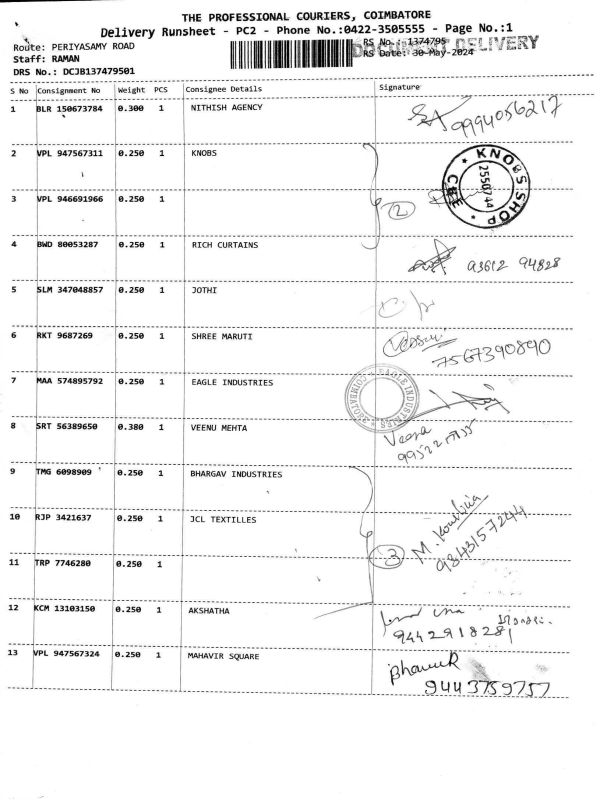 THE PROFESSIONAL COURIERS, COIMBATORE
Delivery Runsheet - PC2 - Phone No.:0422-3505555 - Page No.:1
DOCUMENT DELIVERY
Route: PERIYASAMY ROAD RS No.: 1374795
Staff: RAMAN RS Date: 30-May-2024
DRS No.: DCJB137479501
S No Consignment No Weight PCS Consignee Details Signature
1 BLR 150673784 0.300 1 NITHISH AGENCY 9994056217
2 VPL 947567311 0.250 1 KNOBS
KNOBS SHOP * CBE *
2550744
3 VPL 946691966 0.250 1 2
4 BWD 80053287 0.250 1 RICH CURTAINS 93612 94828
5 SLM 347048857 0.250 1 JOTHI
6 RKT 9687269 0.250 1 SHREE MARUTI
7567390890
7 MAA 574895792 0.250 1 EAGLE INDUSTRIES
EAGLE INDUSTRIES * COIMBATORE
8 SRT 56389650 0.380 1 VEENU MEHTA Veena
9 TMG 6098909 0.250 1 BHARGAV INDUSTRIES
10 RJP 3421637 0.250 1 JCL TEXTILLES
3 M
9843157244
11 TRP 7746280 0.250 1
12 KCM 13103150 0.250 1 AKSHATHA
9442918281
13 VPL 947567324 0.250 1 MAHAVIR SQUARE
9443759757